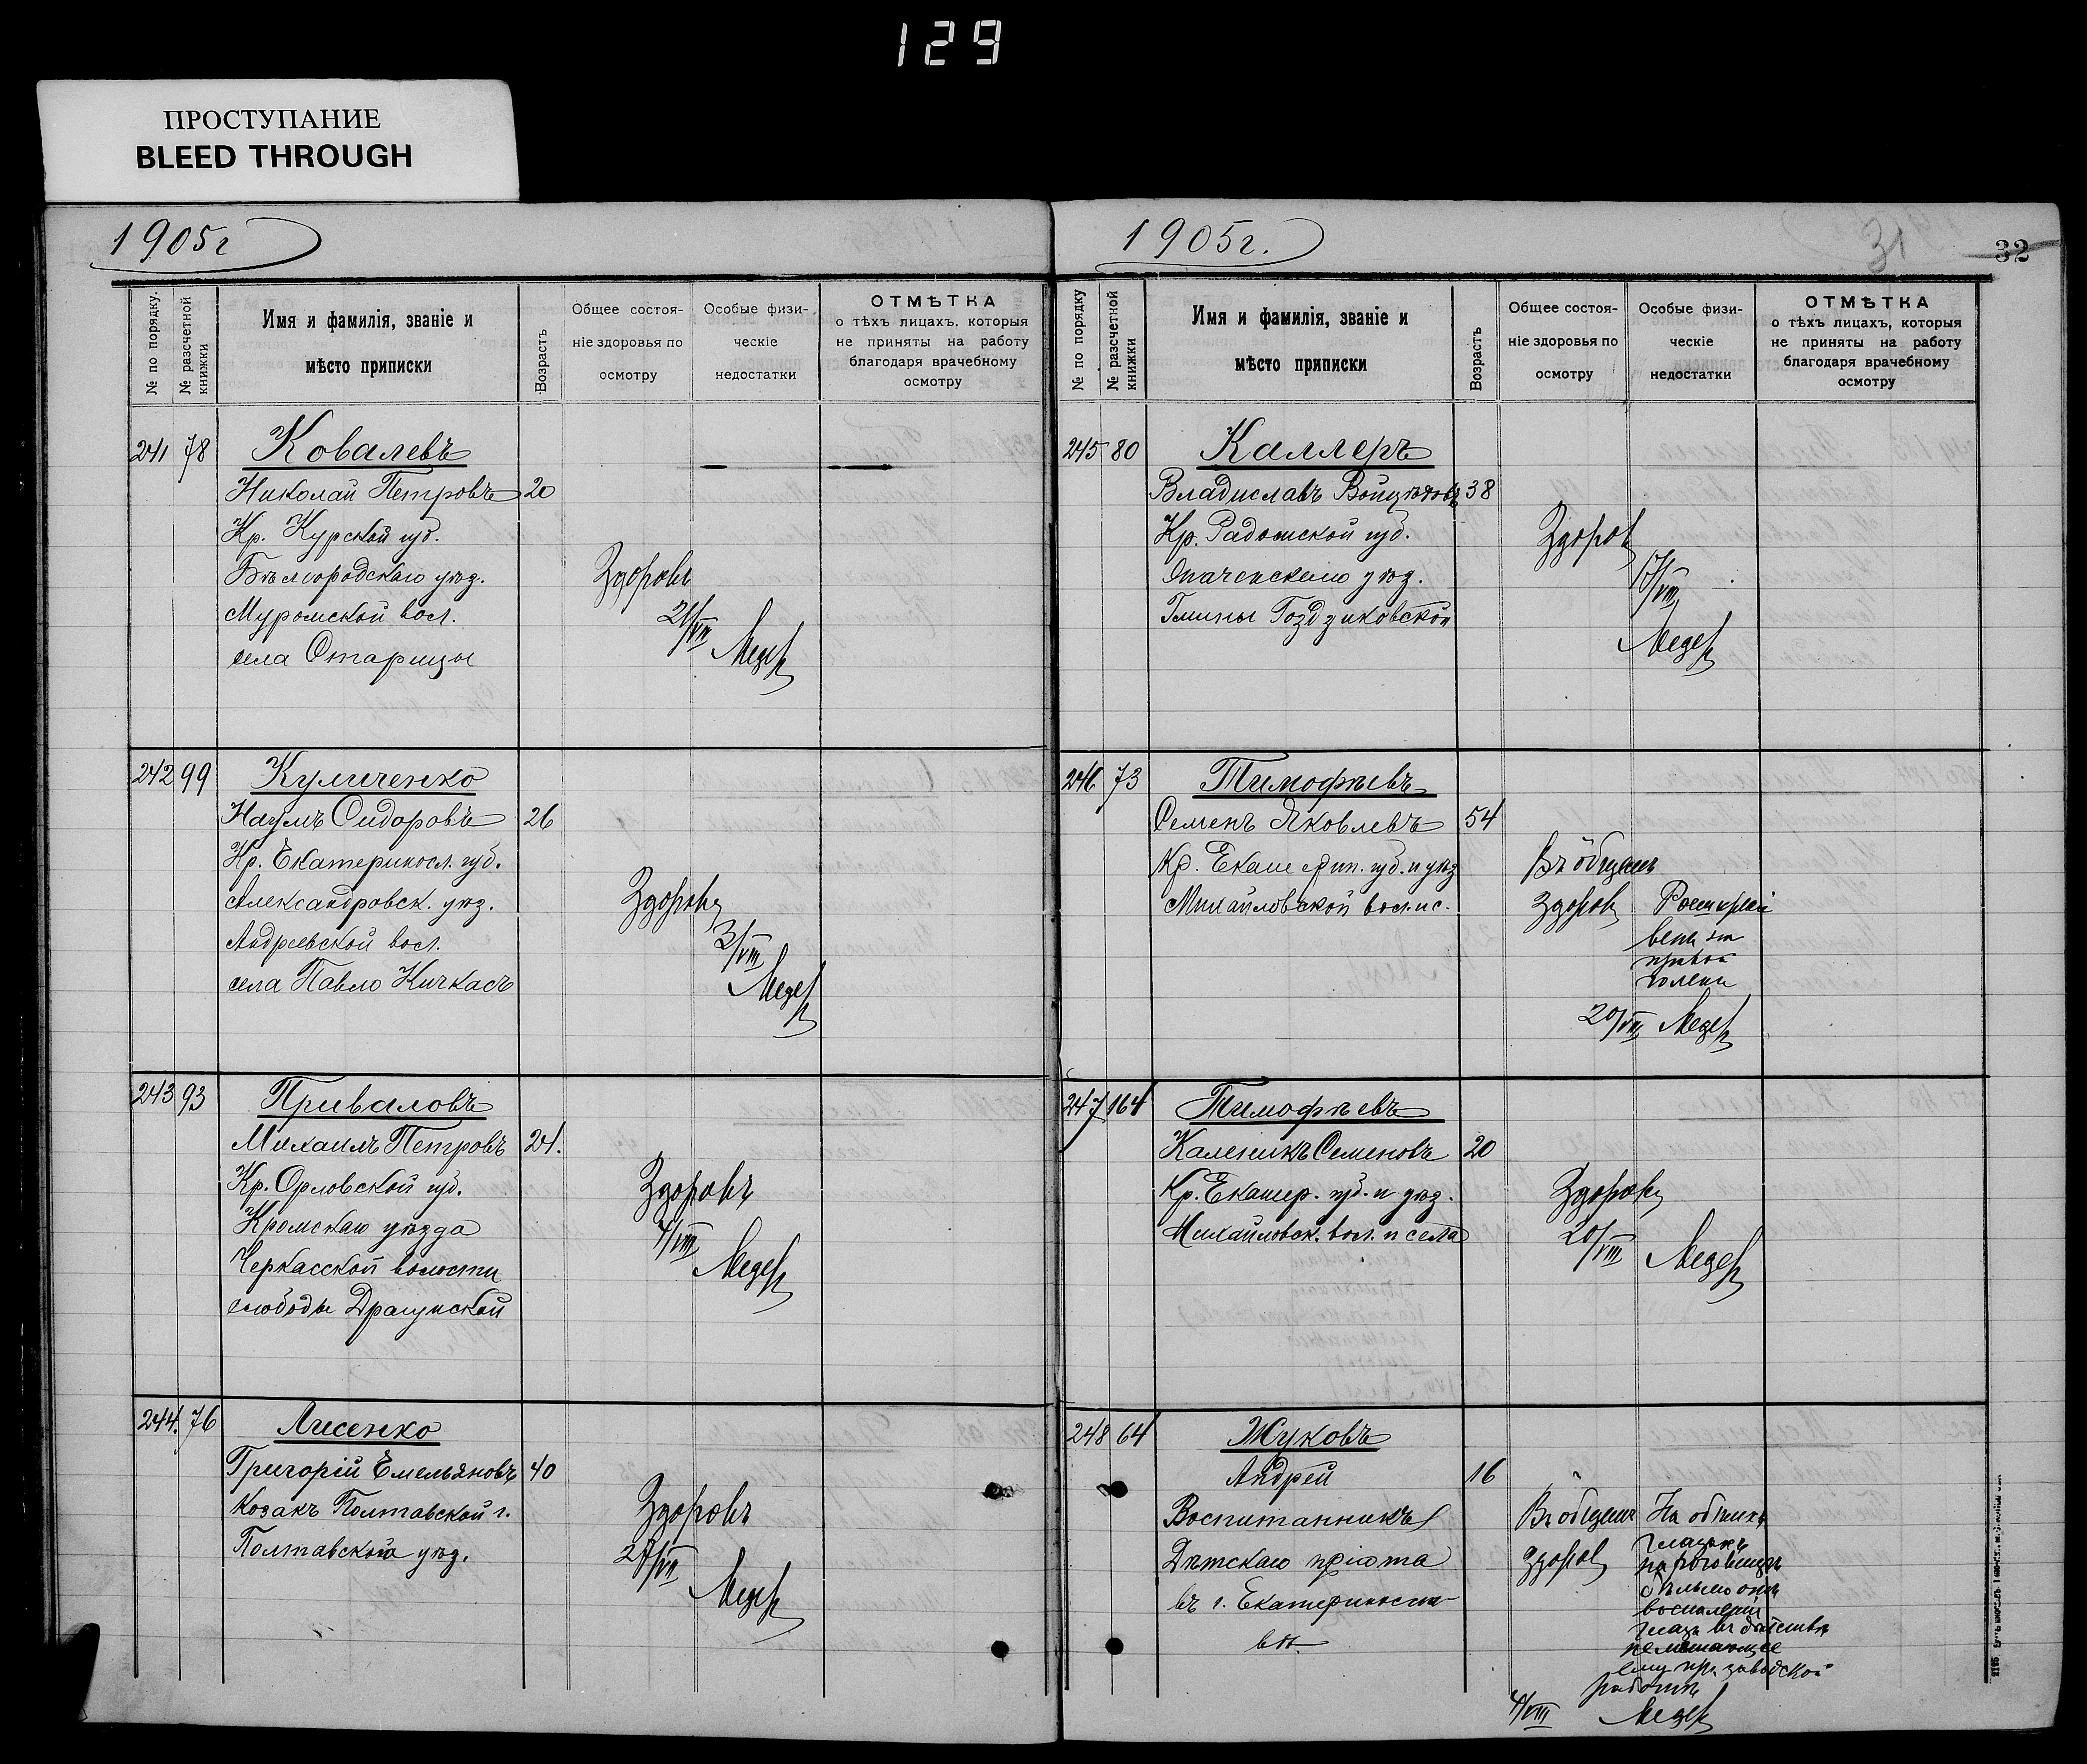 129
ПРОСТУПАНИЕ
BLEED THROUGH
1905г
№ по порядку.
№ разсчетной книжки
Имя и фамилія, званіе и
мѣсто приписки
Возрастъ
Общее состоя-
ніе здоровья по
осмотру
Особые физи-
ческіе
недостатки
ОТМѢТКА
о тѣхъ лицахъ, которыя
не приняты на работу
благодаря врачебному
осмотру
241 78 Ковалевъ
Николай Петровъ 20
Кр. Курской губ.
Бѣлгородскаго уѣз.
Муромской вол.
села Старицы
Здоровъ
21/VII
Медер
242 99 Куличенко
Наумъ Сидоровъ 26
Кр. Екатериносл. губ.
Александровск. уѣз.
Андреевской вол.
села Павло Кичкасъ
Здоровъ
3/VIII
Медер
243 93 Приваловъ
Михаилъ Петровъ 24.
Кр. Орловской губ.
Кромскаго уѣзда
Черкасской волости
слободы Драгунской
Здоровъ
4/VIII
Медер
244. 76 Лисенко
Григорій Емельяновъ 40
Козакъ Полтавской г.
Полтавского уѣз.
Здоровъ
27/VII
Медер
1905г.
31
32
№ по порядку
№ разсчетной книжки
Имя и фамилія, званіе и
мѣсто приписки
Возрастъ
Общее состоя-
ніе здоровья по
осмотру
Особые физи-
ческіе
недостатки
ОТМѢТКА
о тѣхъ лицахъ, которыя
не приняты на работу
благодаря врачебному
осмотру
245 80 Каллеръ
Владиславъ 38
Кр. Радомской губ.
уѣз.
Гмины Гоздзиковской
Здоров
17/VIII
Медер
246 73 Тимофѣевъ
Семенъ Яковлевъ 54
Кр. Екатерин. губ. и уѣз
Михайловской вол. и с.
Въ общемъ
здоровъ
венъ на
правой
голени
20/VII Медер
247 164 Тимофѣевъ
Каленикъ Семеновъ 20
Кр. Екатер. губ. и уѣз.
Михайловск. вол. и села
Здоровъ
20/VIII
Медер
248 64 Жуковъ
Андрей 16
Воспитанникъ
Дѣтскаго пріюта
въ г. Екатериносла
вѣ
Въ общемъ
здоровъ
На обѣихъ
глазахъ
на роговицѣ
бѣльмо отъ
воспаленія
глазъ въ дѣтствѣ
не мешающее
ему при заводской
работѣ
4/VIII Медер